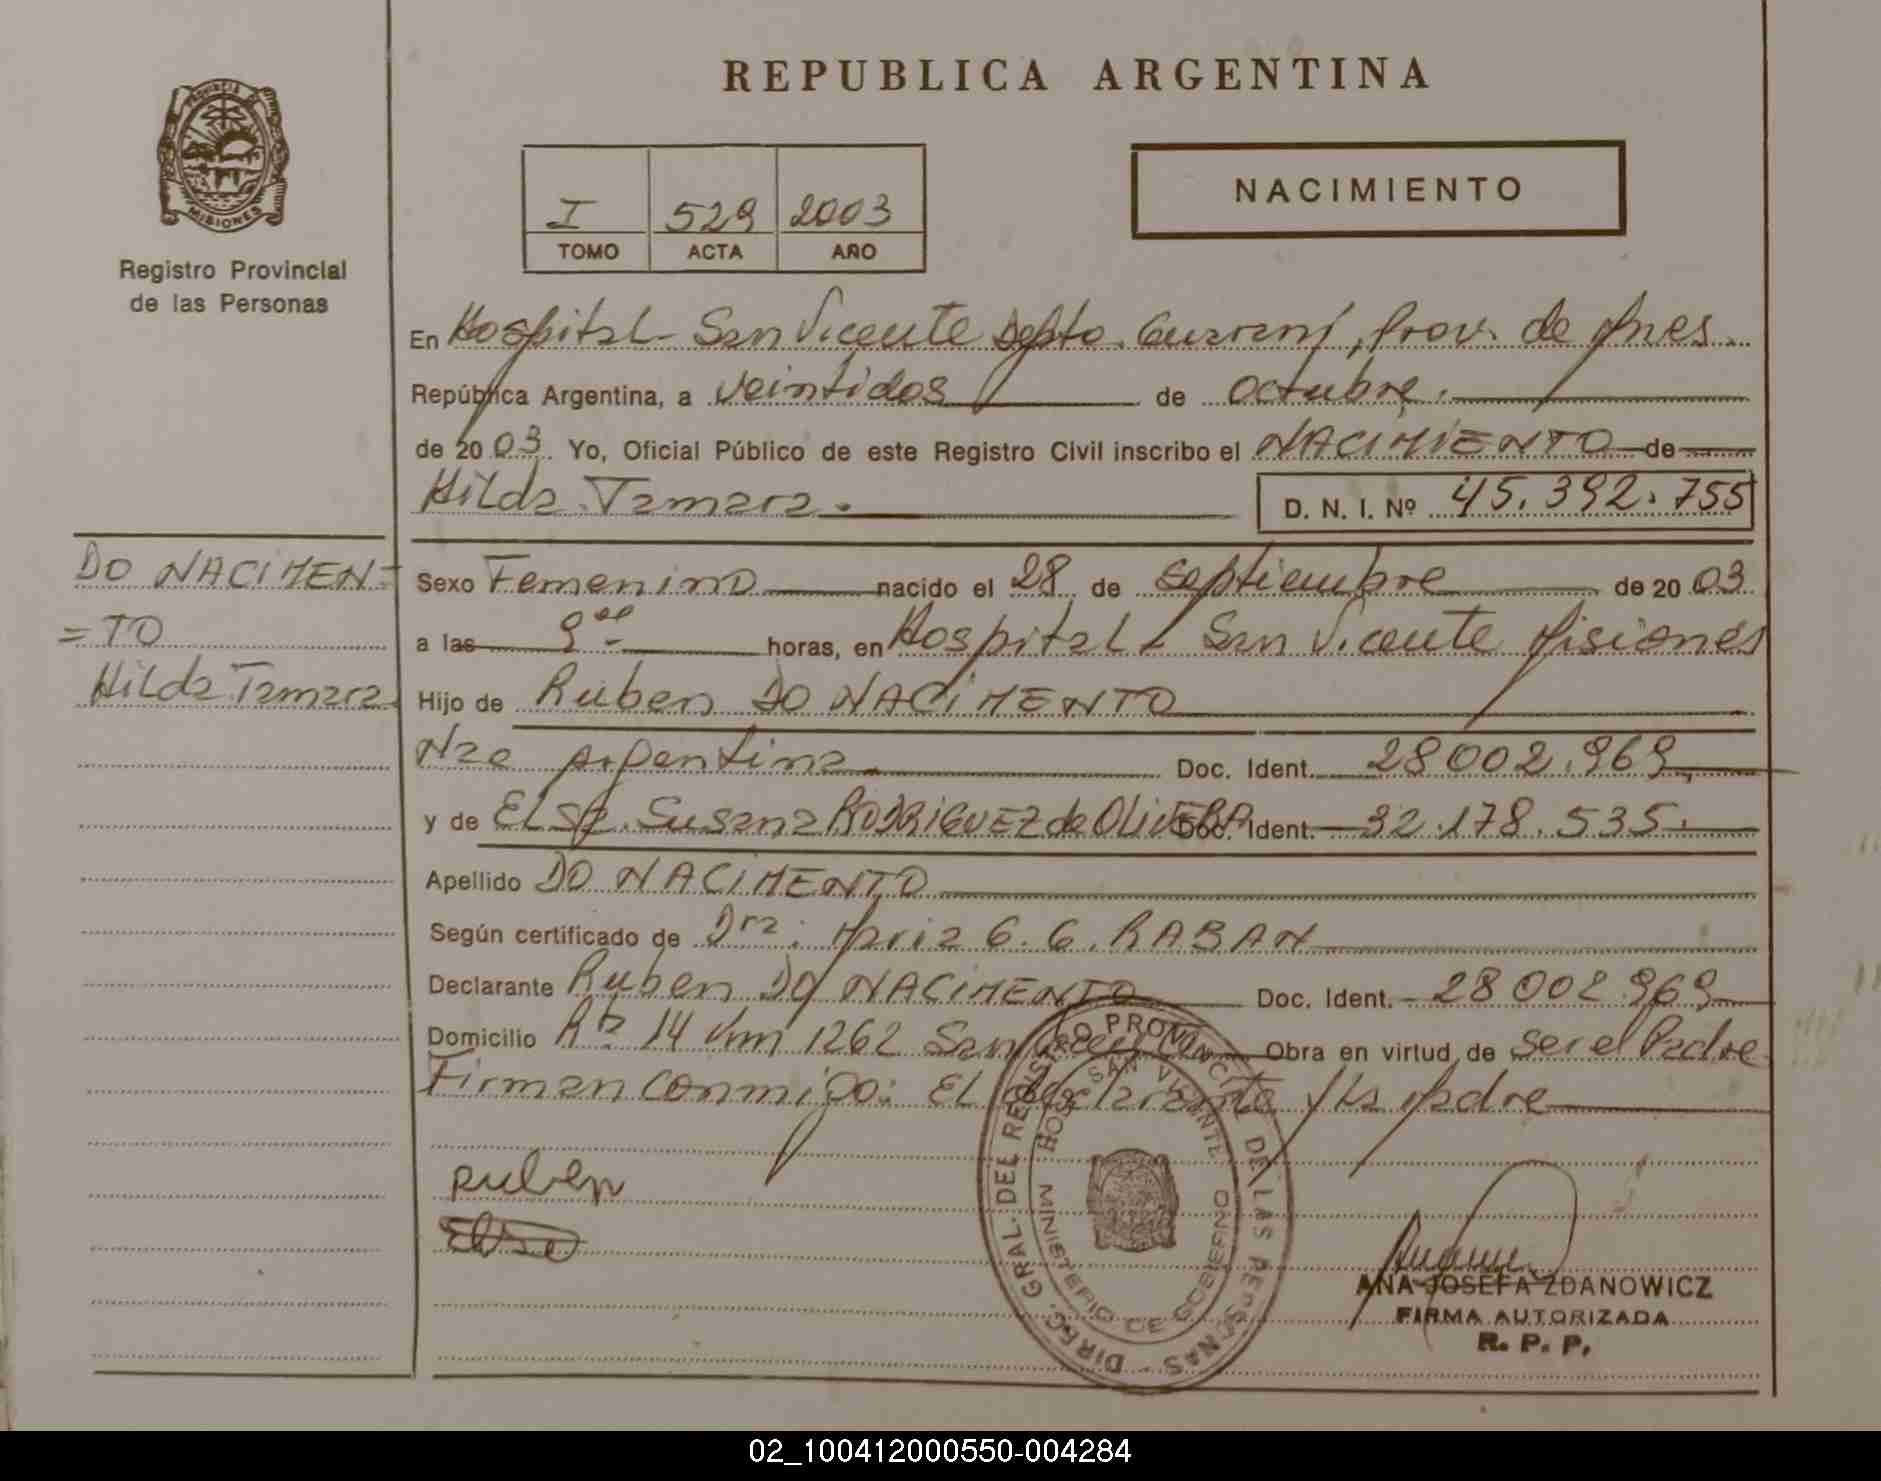 REPUBLICA ARGENTINA
PROVINCIA DE
MISIONES
Registro Provincial
de las Personas
I 529 2003
TOMO ACTA AÑO
NACIMIENTO
En Hospital - San Vicente Depto. Guaraní, Prov. de Mnes.
República Argentina, a veintidos de octubre.
de 2003. Yo, Oficial Público de este Registro Civil inscribo el NACIMIENTO de
Hilda Tamara.
D. N. I. Nº 45.392.755
DO NACIMEN-
=TO
Hilda Tamara
Sexo Femenino nacido el 28 de septiembre de 2003.
a las 9 horas, en Hospital - San Vicente Misiones
Hijo de Ruben DO NACIMENTO
Nac Argentina Doc. Ident. 28002.969
y de Elsa Susana RODRIGUEZ de OLIVERA Doc. Ident. 32.178.535.
Apellido DO NACIMENTO
Según certificado de Dra: Maria G. G. RABAN
Declarante Ruben DO NACIMENTO Doc. Ident. 28 002 969
Domicilio Rta 14 km 1262 San Obra en virtud de ser el Padre
Firman conmigo: El declarante y la Madre
DIREC. GRAL. DEL REGISTRO PROVINCIAL DE LAS PERSONAS
HOSP. SAN VICENTE
MINISTERIO DE GOBIERNO
Ruben
Elsa
ANA JOSEFA ZDANOWICZ
FIRMA AUTORIZADA
R. P. P.
02_100412000550-004284